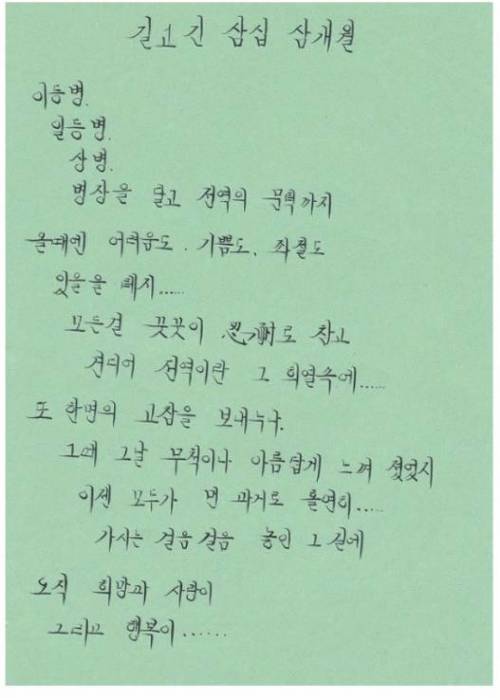 길고긴 삼십 삼개월
이등병.
일등병.
상병.
병장을 달고 전역의 문턱까지
올때엔 어려움도. 기쁨도. 좌절도
있을을 테지.....
모든걸 꿋꿋이 忍耐로 참고
견디어 전역이란 그 희열속에.....
또 한명의 고참을 보내누나.
그때 그날 무척이나 아름답게 느껴 졌었시
이젠 모두가 먼 과거로 홀연히.....
가시는 걸음걸음 놓인 그 길에
오직 희망과 사랑이
그리고 행복이......